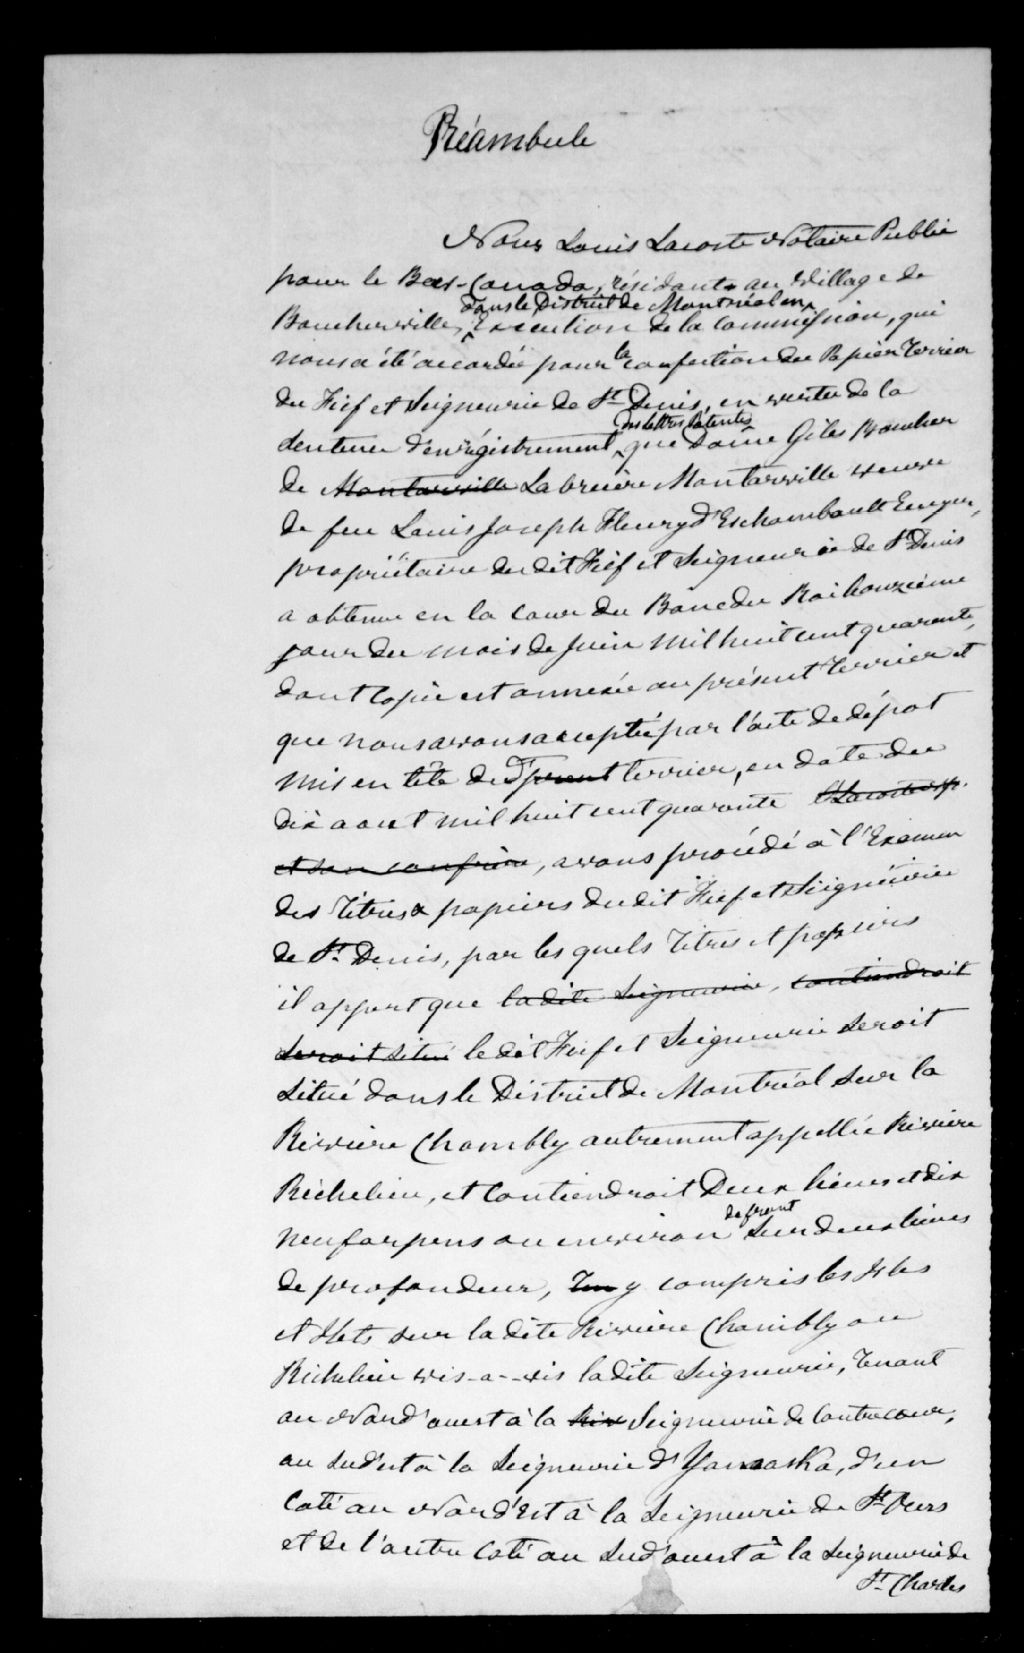 Préambule
Nous Louis Lacoste Notaire Public
pour le Bas-Canada, résidant au Village de
dans le District de Montréal en
Boucherville, Execution de la Commission, qui
nous a été accordée pour la confection du Papier Terrier
du Fief et Seigneurie de St Denis, en vertu de la
des lettres Patentes
Sentence d'enrégistrement, que Dame Giles Boucher
de Montarville Labruière Montarville veuve
de feu Louis Joseph Fleury d'Eschambault Ecuyer,
propriétaire du dit Fief et Seigneurie de St Denis
a obtenue en la cour du Banc du Roi le onzième
jour du mois de Juin mil huit cent quarante,
dont Copie est annexée au présent Terrier et
que nous avons accepté par l'acte de dépot
mis en tête du dt présent terrier, en date du
dix aout mil huit cent quarante
et son confrère, avons procédé à l'Examen
des Titres & papiers du dit Fief et Seigneurie
de St Denis, par les quels Titres et papiers
il appert que la dite Seigneurie, contiendroit
seroit situé le dit Fief et Seigneurie seroit
situé dans le District de Montréal sur la
Rivière Chambly autrement appellée Rivière
Richelieu, et Contiendroit Deux lieues et dix
de front
neuf arpens ou environ sur deux lieues
de profondeur, y compris les Isles
et Ilets sur la dite Rivière Chambly ou
Richelieu vis-a-vis la dite Seigneurie, Tenant
au Nord'ouest à la Seigneurie de Contrecoeur,
au Sud'est à la Seigneurie d'Yamaska, d'un
Coté au Nord'Est à la Seigneurie de St Ours
et de l'autre Coté au Sud'ouest à la Seigneurie de
St Charles